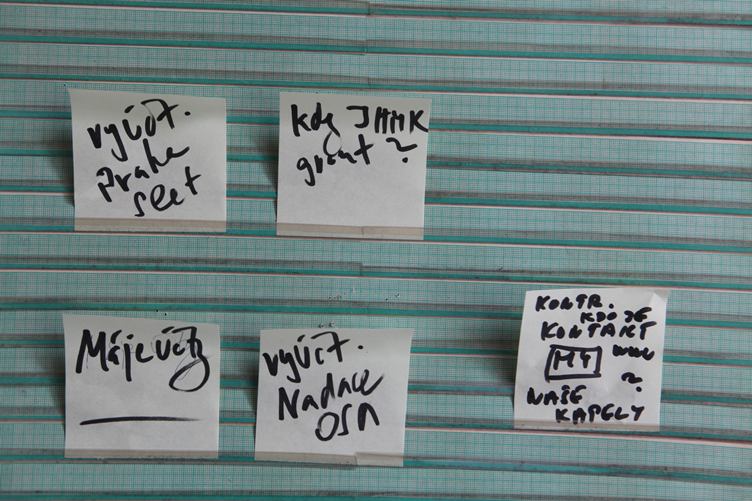 vyúčt.
Prahe
sest
kdy JHMK
grant ?
Máje účty
vyúčt.
Nadace
OSA
KONTR.
KDO JE
KONTAKT
MY www
?
NAŠE
KAPELY